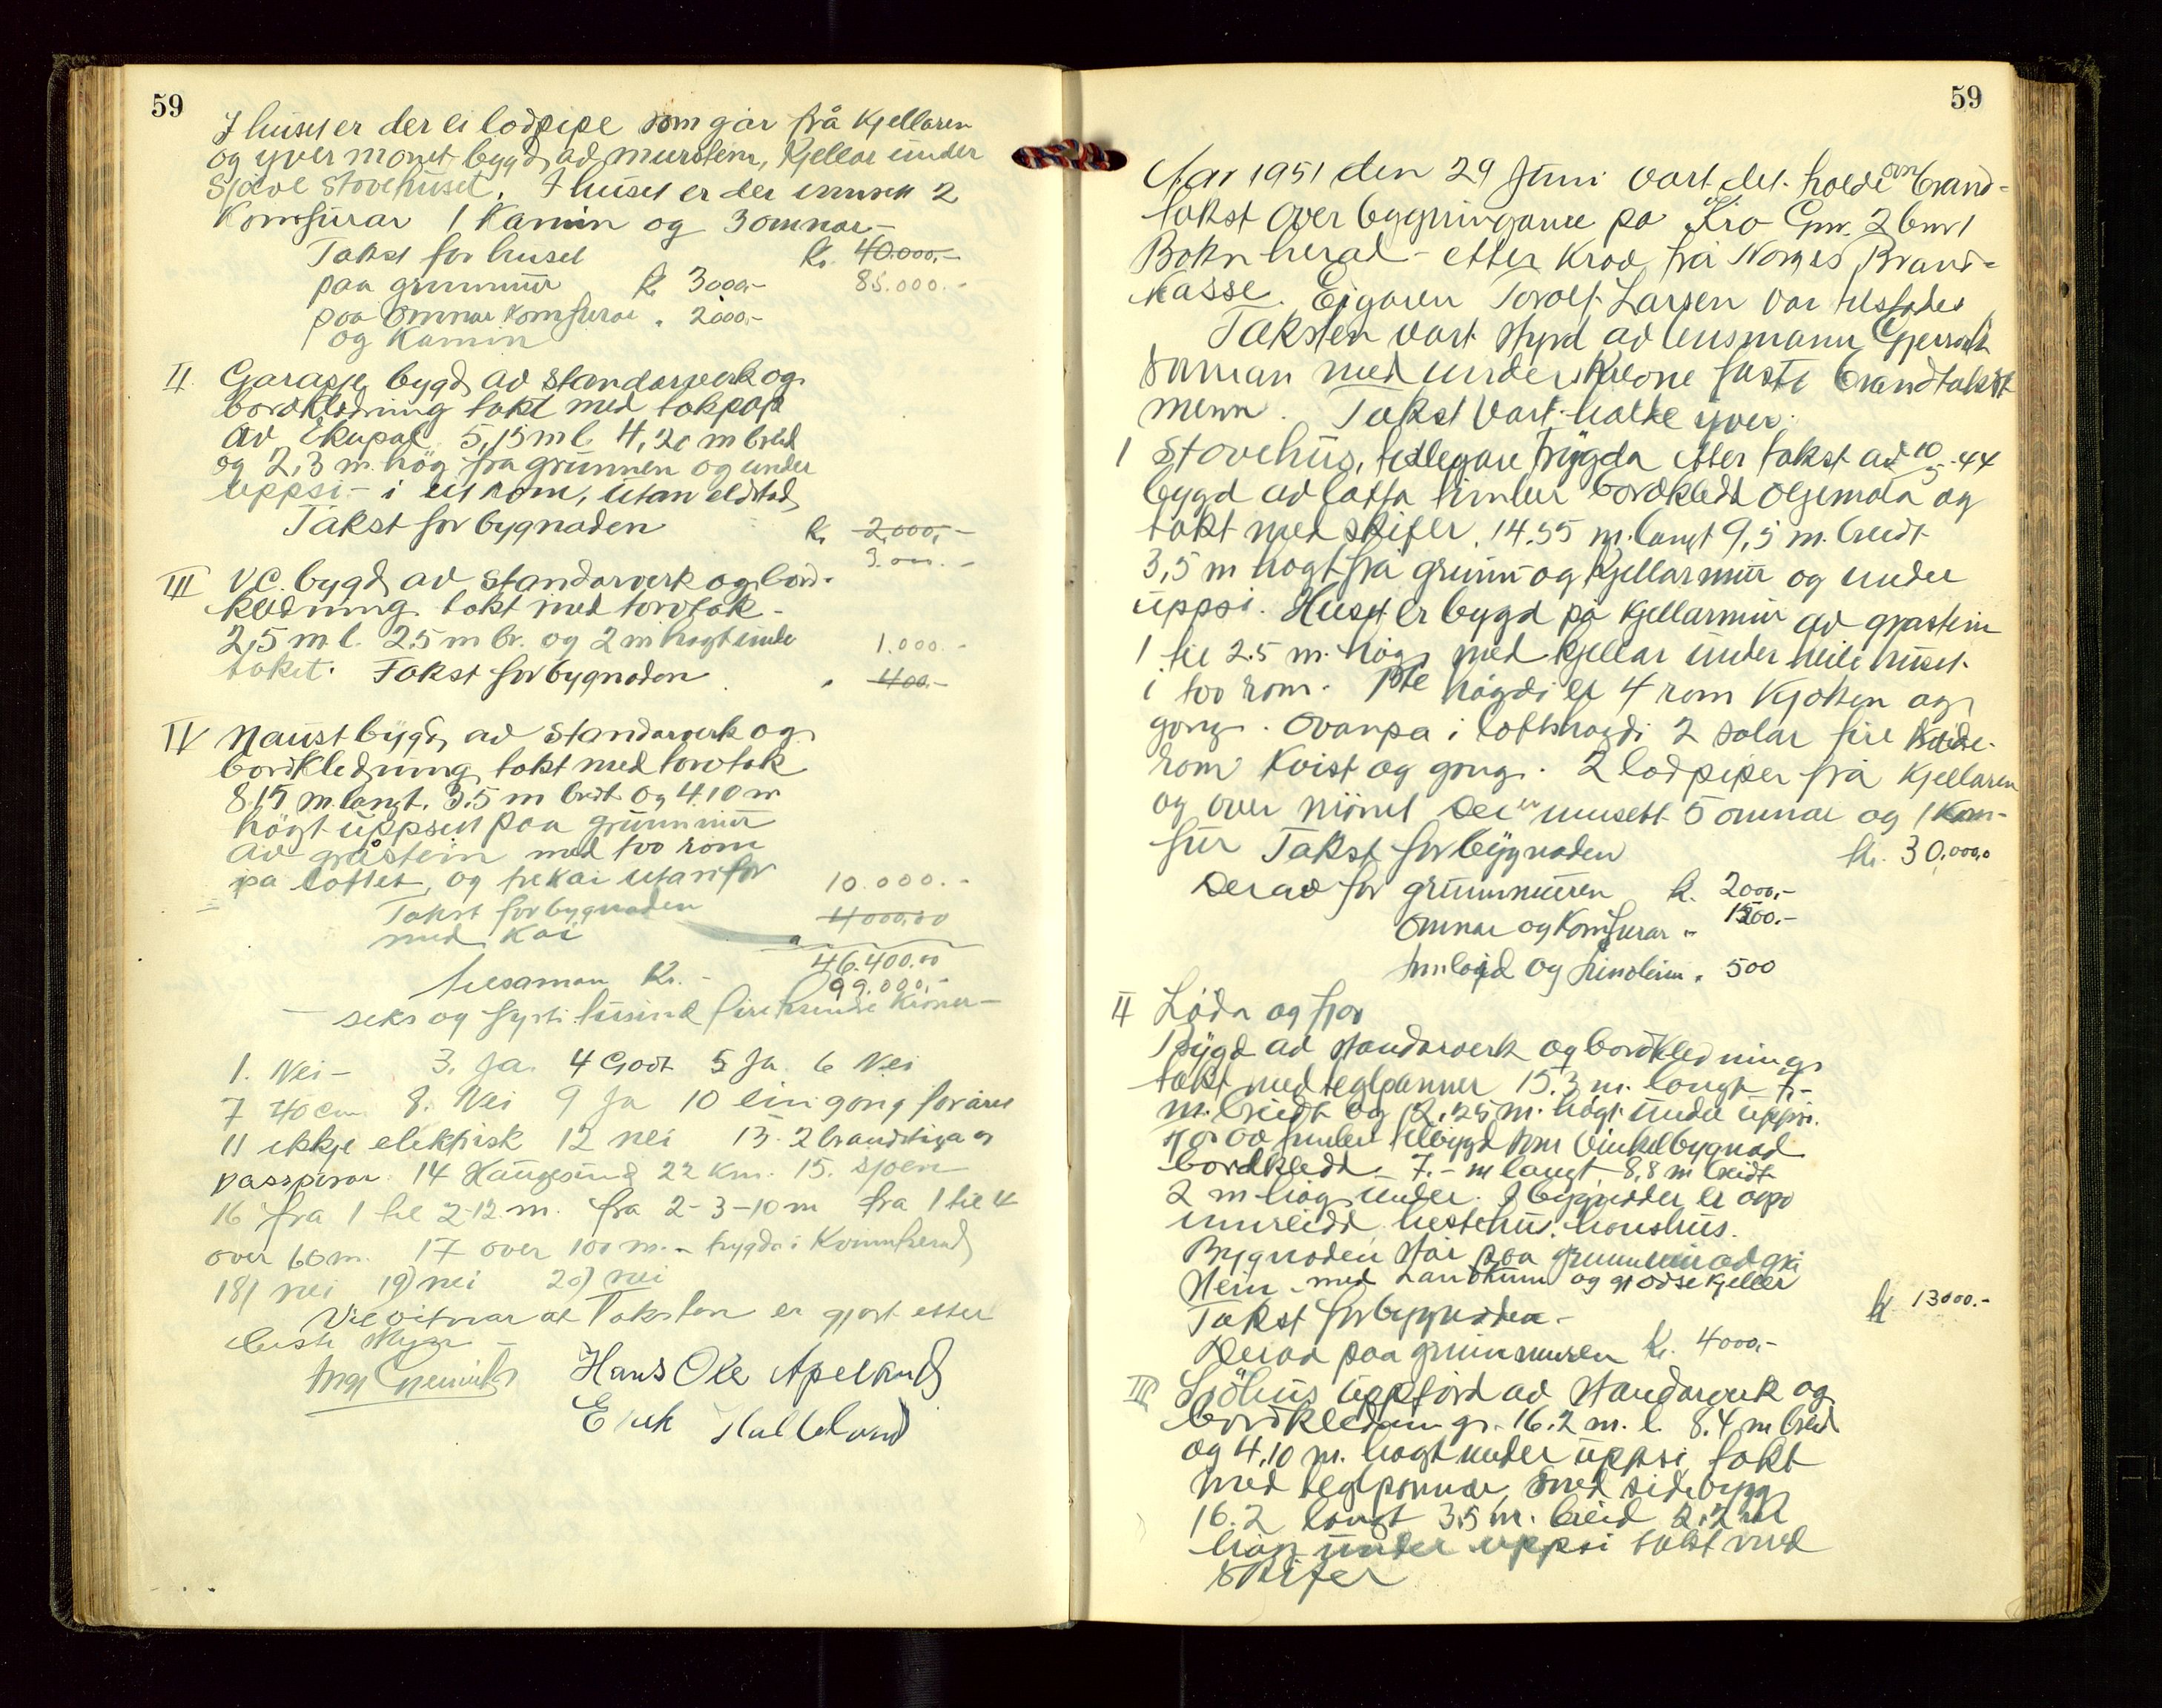 59
I huset er der ei lodpipe som går frå Kjellaren
og yver mönet bygd ad murstein, Kjellar under
Sjølve stovehuset. I huset er der innsett 2
Komfurar 1 Kamin og 3 omnar –
Takst for huset kr. 40.000,-
paa grunnmur kr 3000,- 85.000.-
paa omnar Komfurar " 2000,-
og Kamin
II Garasje bygd av standarverk og
bordkledning takt med takpap
av 5,15 m l. 4,20 m breid
og 2,3 m. hög fra grunnen og under
uppsi – i eit rom, utan eldstad
Takst for bygnaden kr 2,000,-
3.000.-
III V.C. bygd av standarverk og bord-
kledning takt med torvtak –
2,5 m l. 2.5 m br. og 2 m högt under 1.000.-
taket. Takst for bygnaden " 400.-
IV Naust bygd av standarverk og
bordkledning takt med torvtak
8.15 m. langt. 3.5 m bredt og 4.10 m
högt uppsett paa grunnmur
av gråstein med too rom
pa loftet, og trekai utanfor 10.000.-
Takst for bygnaden 4000,00
med Kai
46.400.00
tilsaman Kr. – 99.000,-
– seks og fyrti tusind firehundre kroner –
1. Nei – 3. Ja 4 Godt 5 Ja 6 Nei
7 40 cm 8. Nei 9 Ja 10 ein gong foråret
11 ikkje elektrisk 12 nei 13. 2 brandstigar
14 Haugesund 22 Km. 15. sjøen
16 fra 1 til 2-12 m. fra 2-3-10 m fra 1 til 4
over 60 m. 17 over 100 m. – trygda i Kvinnherad
18) nei 19) nei 20) nei
Vi vitnar at Taksten er gjort etter
beste skjøn –
Hans Ole Apeland
59
Aar 1951 den 29 Juni vart det holde brand-
takst over bygningane på Kro Gnr. 2 bnr 1
Bokn herad – etter Krav frå Norges Brand-
kasse. Eigaren Torolf Larsen var tilstades
Taksten vart styrd av lensmann
saman med underskrevne faste brandtakst
menn. Takst vart halde yver:
1 Stovehus, tidlegare trygda etter takst av 10/5-44
bygd av lafta timber bordkledd oljemala og
takt med skifer. 14.55 m. langt 9,5 m. breidt
3,5 m högt frå grunn og Kjellarmur og under
uppsi. Huset er bygd på Kjellarmur av gråstein
1 til 2.5 m. hög med kjellar under heile huset
i too rom. 1ste högdi er 4 rom Kjøken og
gong. Ovanpa i loftshøgdi 2 salar fire
rom Kvist og gong. 2 lodpiper frå Kjellaren
og over mönet Der er innsett 5 omnar og 1 Kom-
fur Takst for bygnaden kr. 30.000,0
Derav for grunnmuren kr. 2000,-
Omnar og Komfurar " 1500.-
Innlagd og linoleum " 500
II Løda og fjos
Bygd av standarverk og bordkledning
takt med teglpanner 15.3 m. langt 7-
m. breidt og 2,25 m. högt under uppsi.
Fjos av timber tilbygd som Vinkelbygnad
bordkledd – 7.- m langt, 8,8 m breidt
2 m hög under. I bygnader er ogso
innreidd hestehus, hönshus.
Bygnaden står paa grunnmur av grå
stein – med Landkum og gjødselkjeller
Takst for bygnaden – kr 13000.-
Derav paa grunnmuren Kr. 4000,-
III Sjöhus uppförd av standarverk og
bordkledning. 16.2 m. l. 8.4 m breid
og 4,10 m. høgt under uppsi, takt
med teglpannar, med sidebygg
16.2 langt 3.5 m. breid 2.2 m
hög under uppsi takt med
skifer